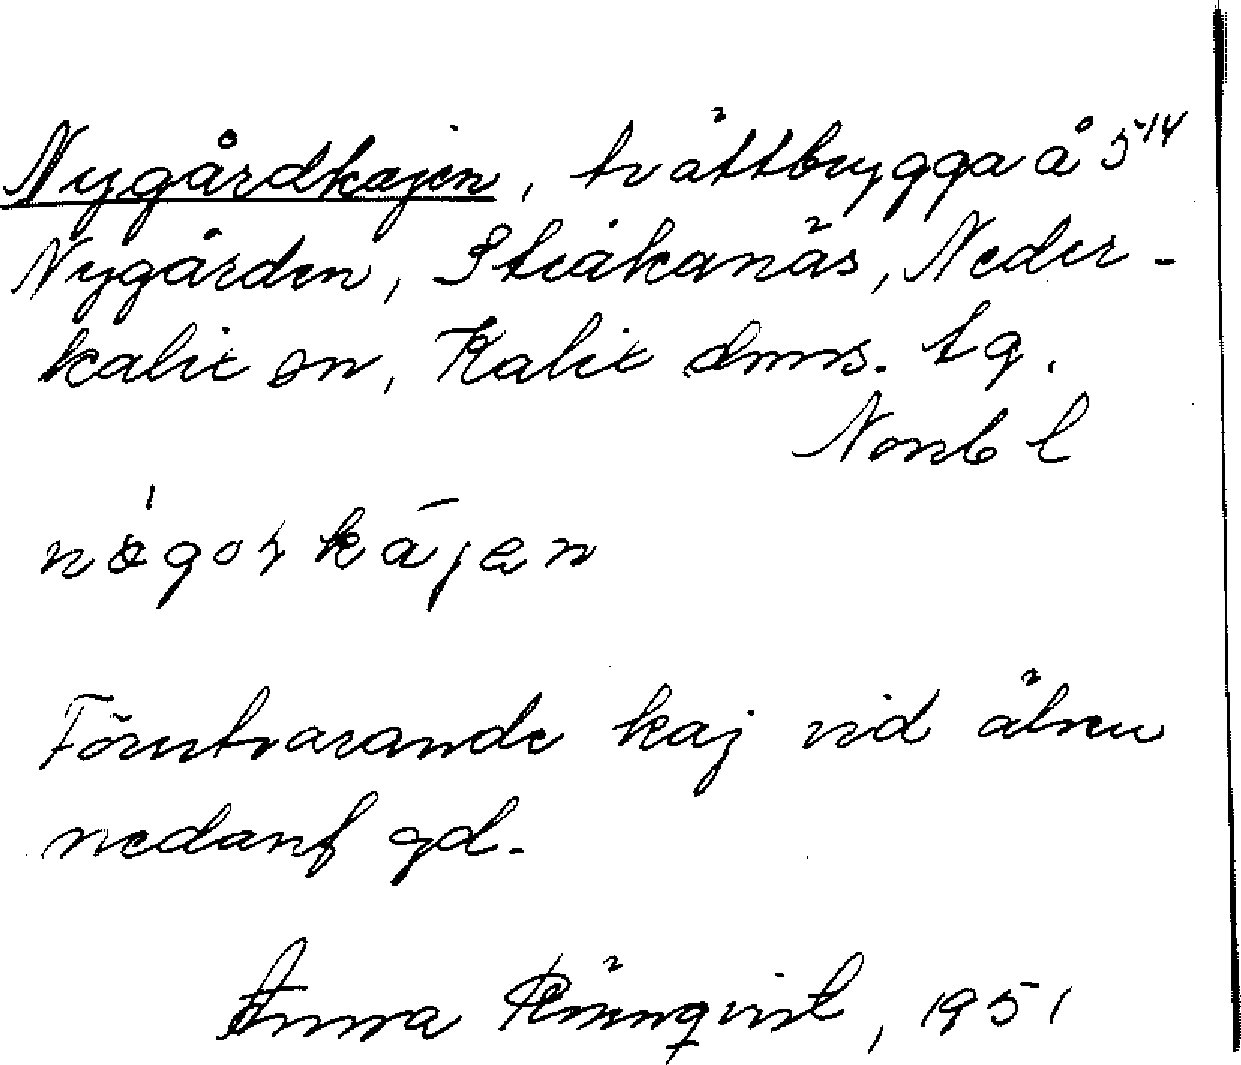 Nygårdkajen, tvättbrygga å 5¹⁴
Nygården, Stråkanäs, Neder-
kalix sn, Kalix dms. tg.
Norrb l
någoṣkājen
Förutvarande kaj vid älven
nedanf gd.
Anna Rönnqvist, 1951